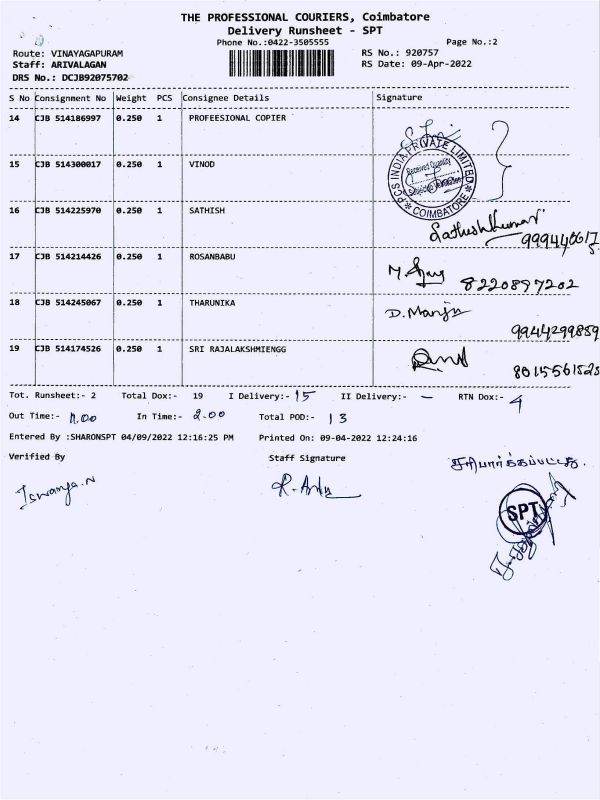 THE PROFESSIONAL COURIERS, Coimbatore
Delivery Runsheet - SPT
Phone No.:0422-3505555
Page No.:2
Route: VINAYAGAPURAM
RS No.: 920757
Staff: ARIVALAGAN
RS Date: 09-Apr-2022
DRS No.: DCJB92075702
S No Consignment No Weight PCS Consignee Details Signature
14 CJB 514186997 0.250 1 PROFEESIONAL COPIER
PCS INDIA PRIVATE LIMITED
Received Quantity
* COIMBATORE *
15 CJB 514300017 0.250 1 VINOD
16 CJB 514225970 0.250 1 SATHISH
Sathishkumar
17 CJB 514214426 0.250 1 ROSANBABU
8220897202
18 CJB 514245067 0.250 1 THARUNIKA
D. Manju
9944299859
19 CJB 514174526 0.250 1 SRI RAJALAKSHMIENGG
8015561525
Tot. Runsheet:- 2 Total Dox:- 19 I Delivery:- 15 II Delivery:- — RTN Dox:- 4
Out Time:- In Time:- 2.00 Total POD:- 13
Entered By :SHARONSPT 04/09/2022 12:16:25 PM Printed On: 09-04-2022 12:24:16
Verified By Staff Signature
சரிபார்க்கப்பட்டது.
SPT